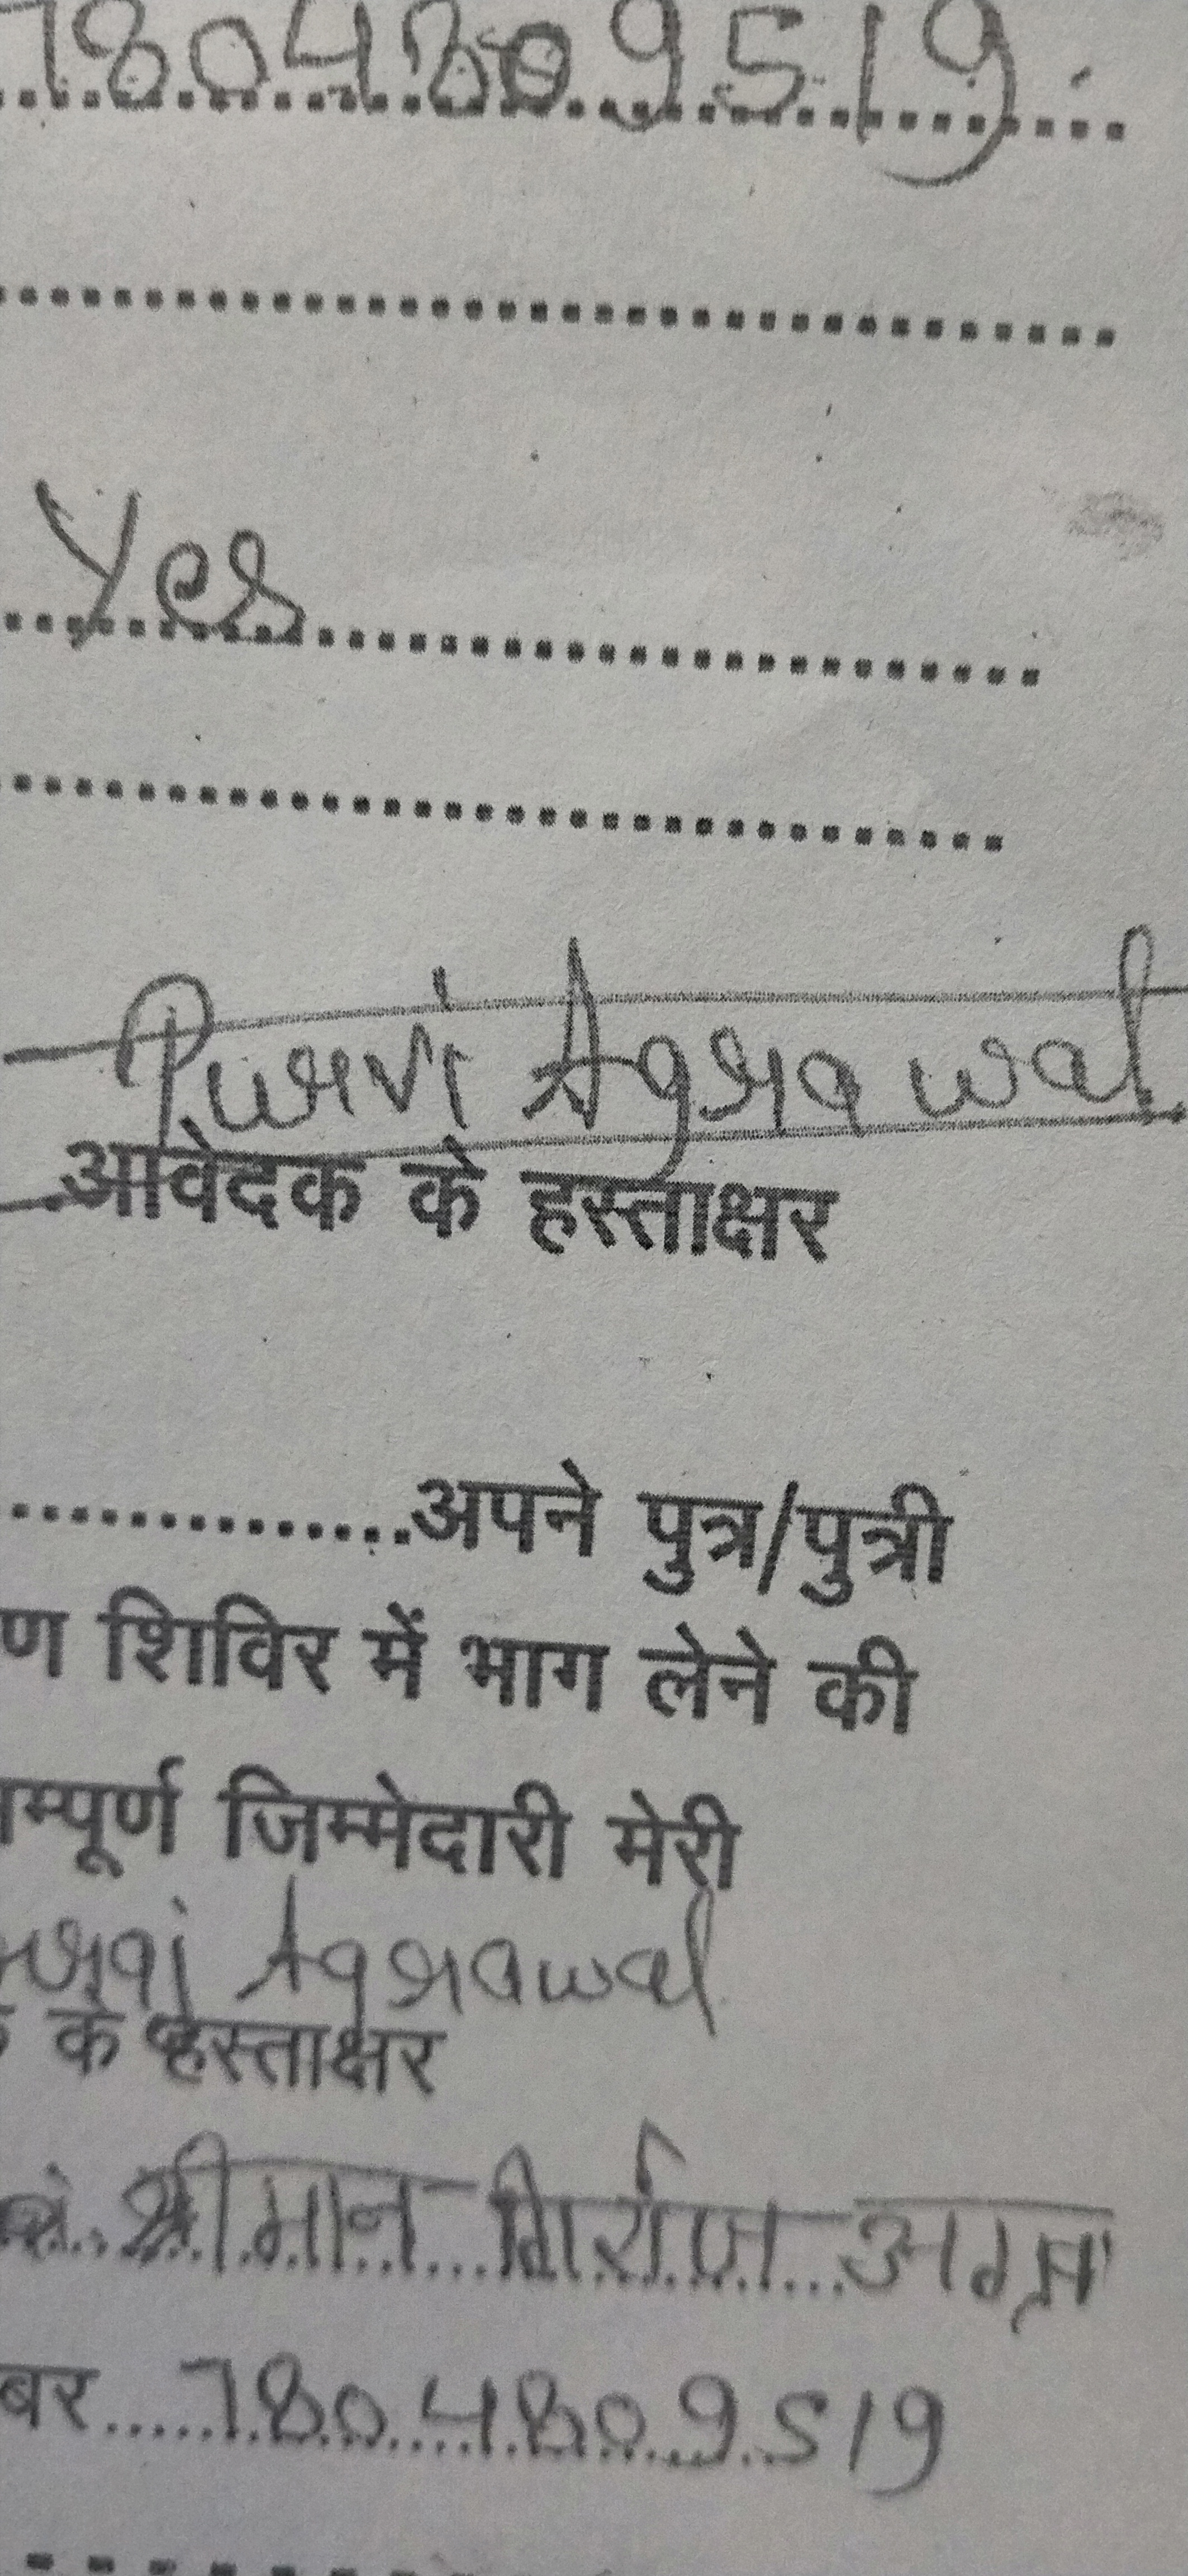 7804809519
Yes
Purvi Agrawal
आवेदक के हस्ताक्षर
अपने पुत्र/पुत्री
ण शिविर में भाग लेने की
म्पूर्ण जिम्मेदारी मेरी
Agrawal
के हस्ताक्षर
श्रीमान गिर्राज
बर 7804809519